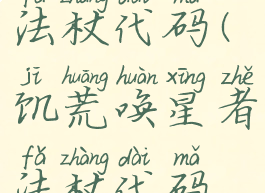 fǎ zhàng dài mǎ
法杖代码(
jī huāng huàn xīng zhě
饥荒唤星者
fǎ zhàng dài mǎ
法杖代码